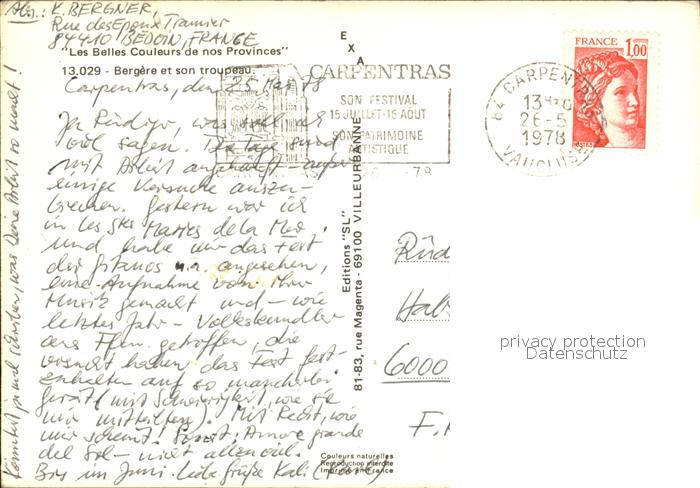 Abs.: K. BERGNER,
Rue des Epoux Tramier
84410 BÉDOIN, FRANCE
"Les Belles Couleurs de nos Provinces"
13.029 - Bergère et son troupeau
Carpentras, den 25. Mai 78
Ja Rüdiger, was soll ich
viel sagen. Die Tage sind
mit Arbeit angefüllt - außer
einige Versuche auszu-
brechen. Gestern war ich
in Les Stes Maries de la Mer,
und habe mir das Fest
der Gitanos u.a. angesehen,
eine Aufnahme von ihrer
Musik gemacht und - wie
letztes Jahr - Volkskundler
aus Ffm. getroffen, die
versucht haben das Fest fest-
zuhalten auf so mancherlei
Gerät (mit Schwierigkeit, wie sie
mir mitteilten). Mit Recht, wie
mir scheint! Sonst: Amore grande
del Sol - nicht allzu viel.
Bis im Juni. Liebe Grüße Kali
Könntest ja mal schreiben, was Deine Arbeit so macht!
EXA
CARPENTRAS
SON FESTIVAL
15 JUILLET-15 AOUT
SON PATRIMOINE
ARTISTIQUE
Editions "SL"
81-83, rue Magenta - 69100 VILLEURBANNE
84 CARPENTRAS
26-5
1978
VAUCLUSE
FRANCE
1,00
POSTES
6000
privacy protection
Datenschutz
Couleurs naturelles
Reproduction interdite
Imprimé en France